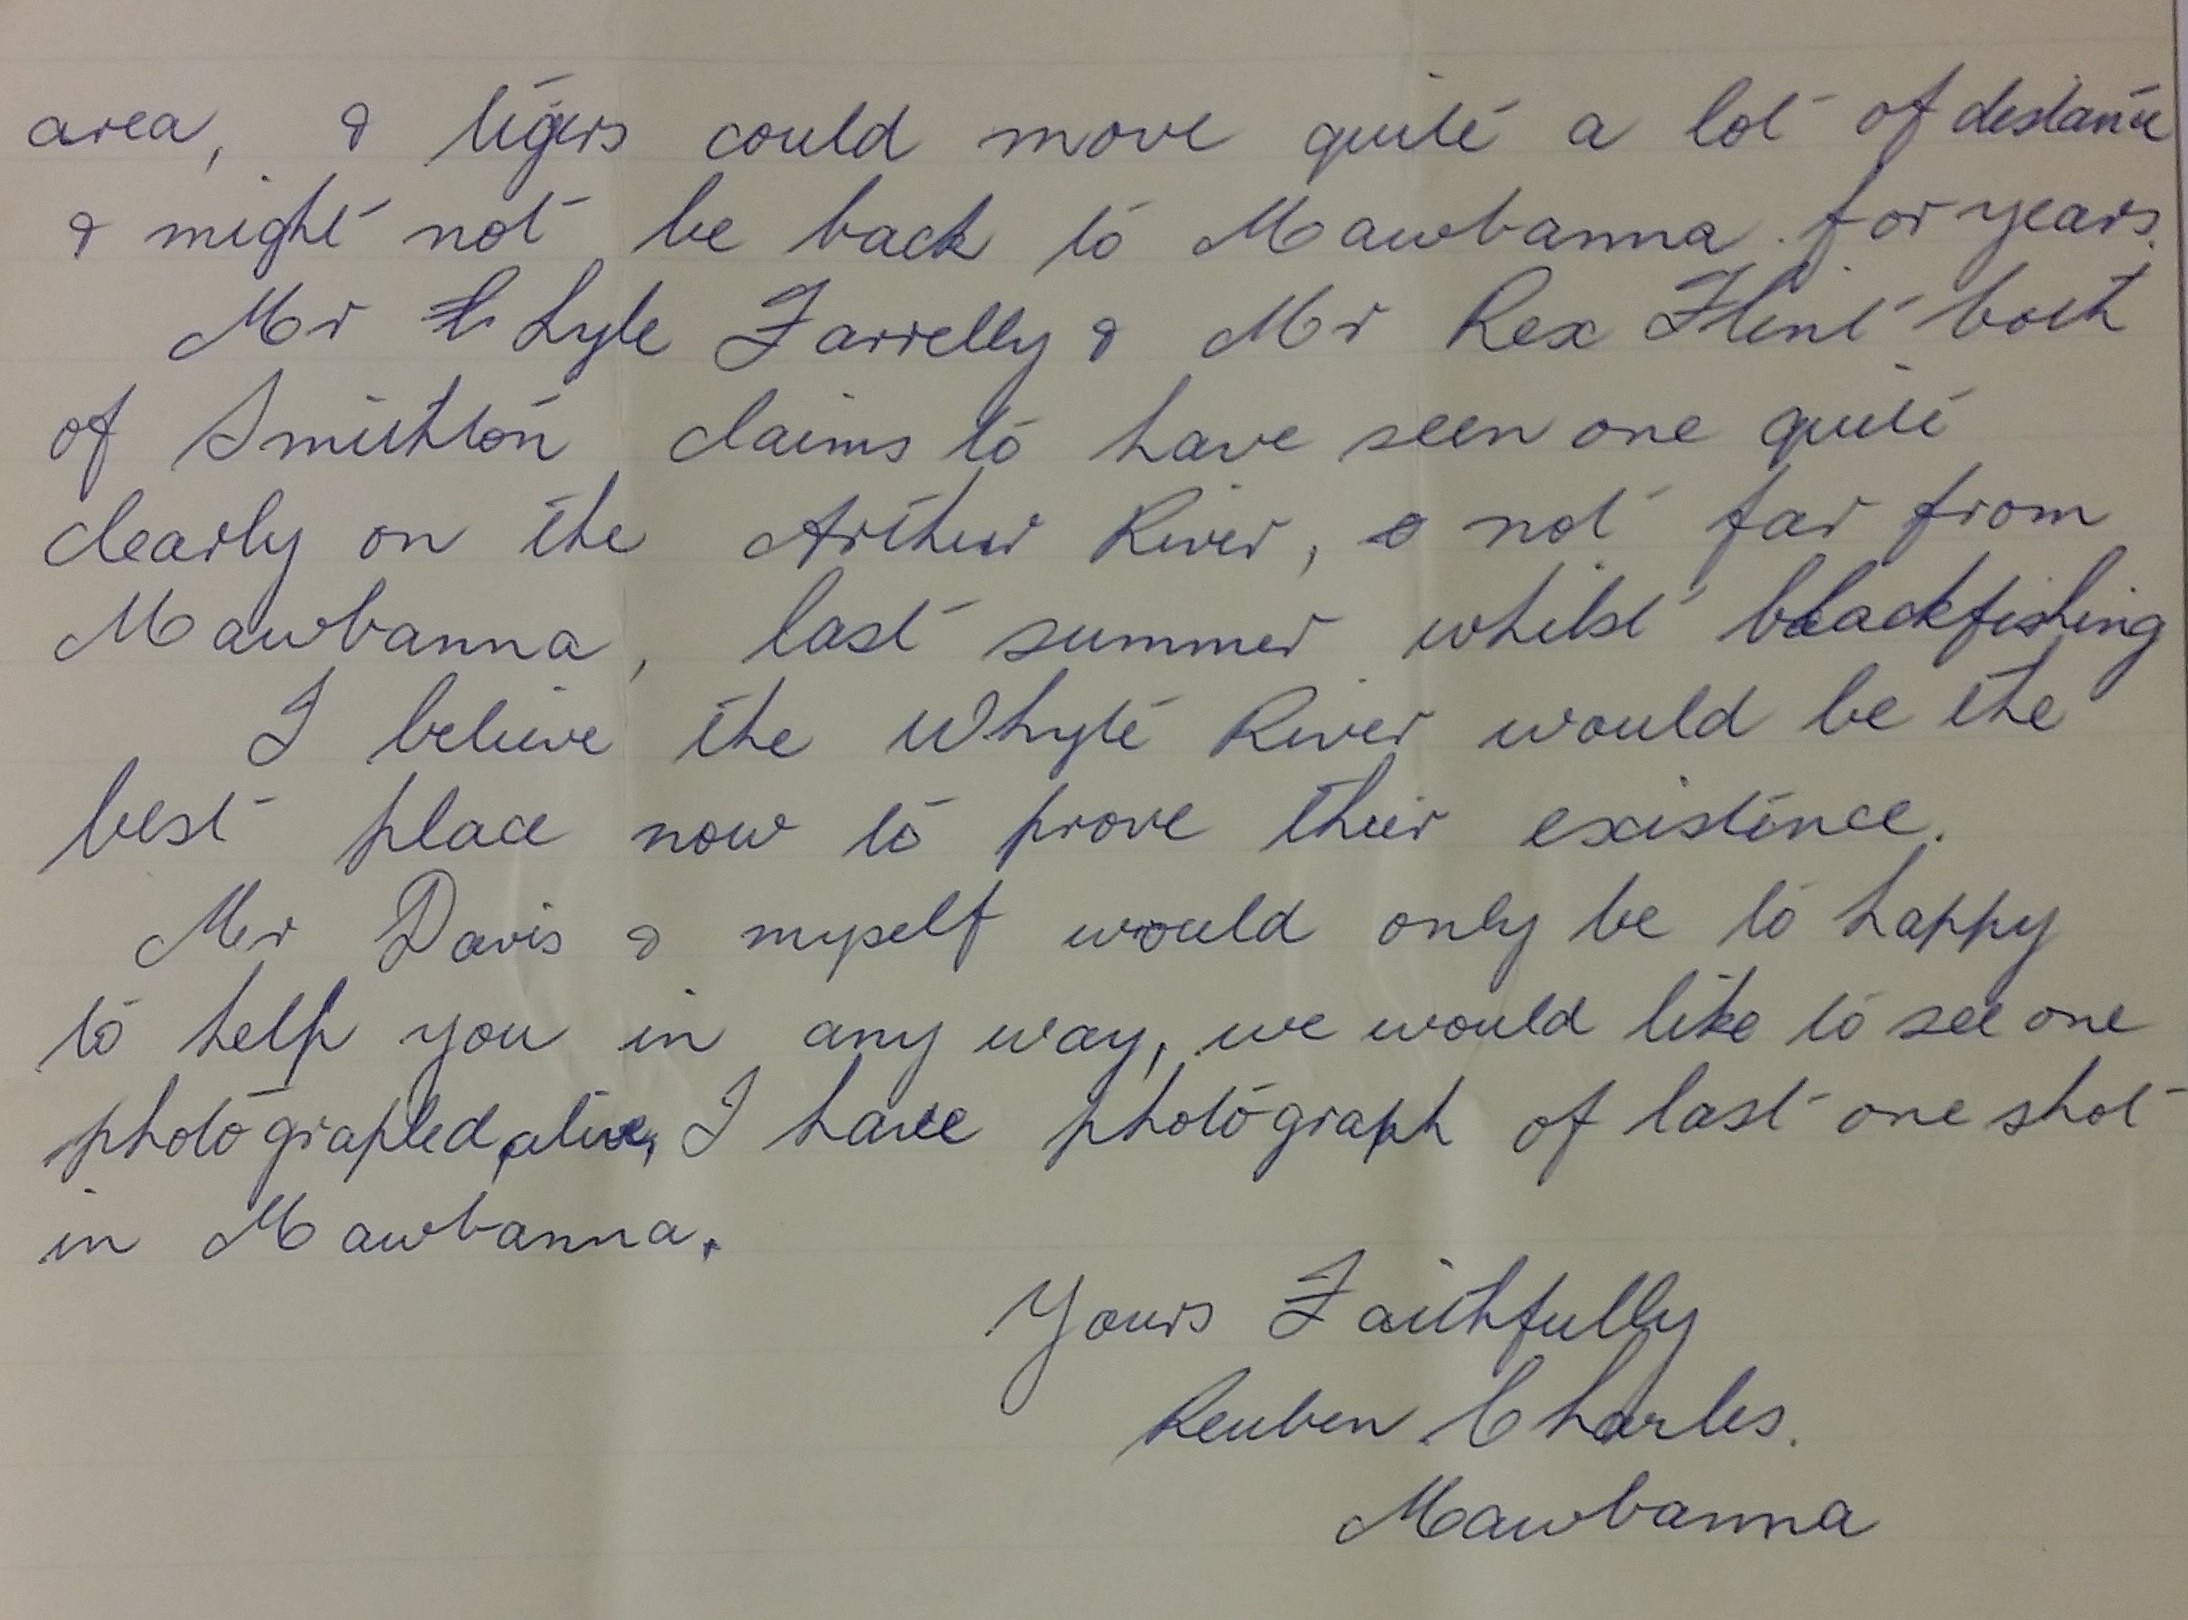 area, & tigers could move quite a lot of distance
& might not be back to Mawbanna for years.
Mr Lyle Farrelly & Mr Rex Flint both
of Smithton claims to have seen one quite
clearly on the Arthur River, & not far from
Mawbanna, last summer whilst blackfishing
I believe the Whyte River would be the
best place now to prove their existence.
Mr Davis & myself would only be to happy
to help you in any way, we would like to see one
photographed alive, I have photograph of last one shot
in Mawbanna.
Yours Faithfully
Reuben Charles.
Mawbanna